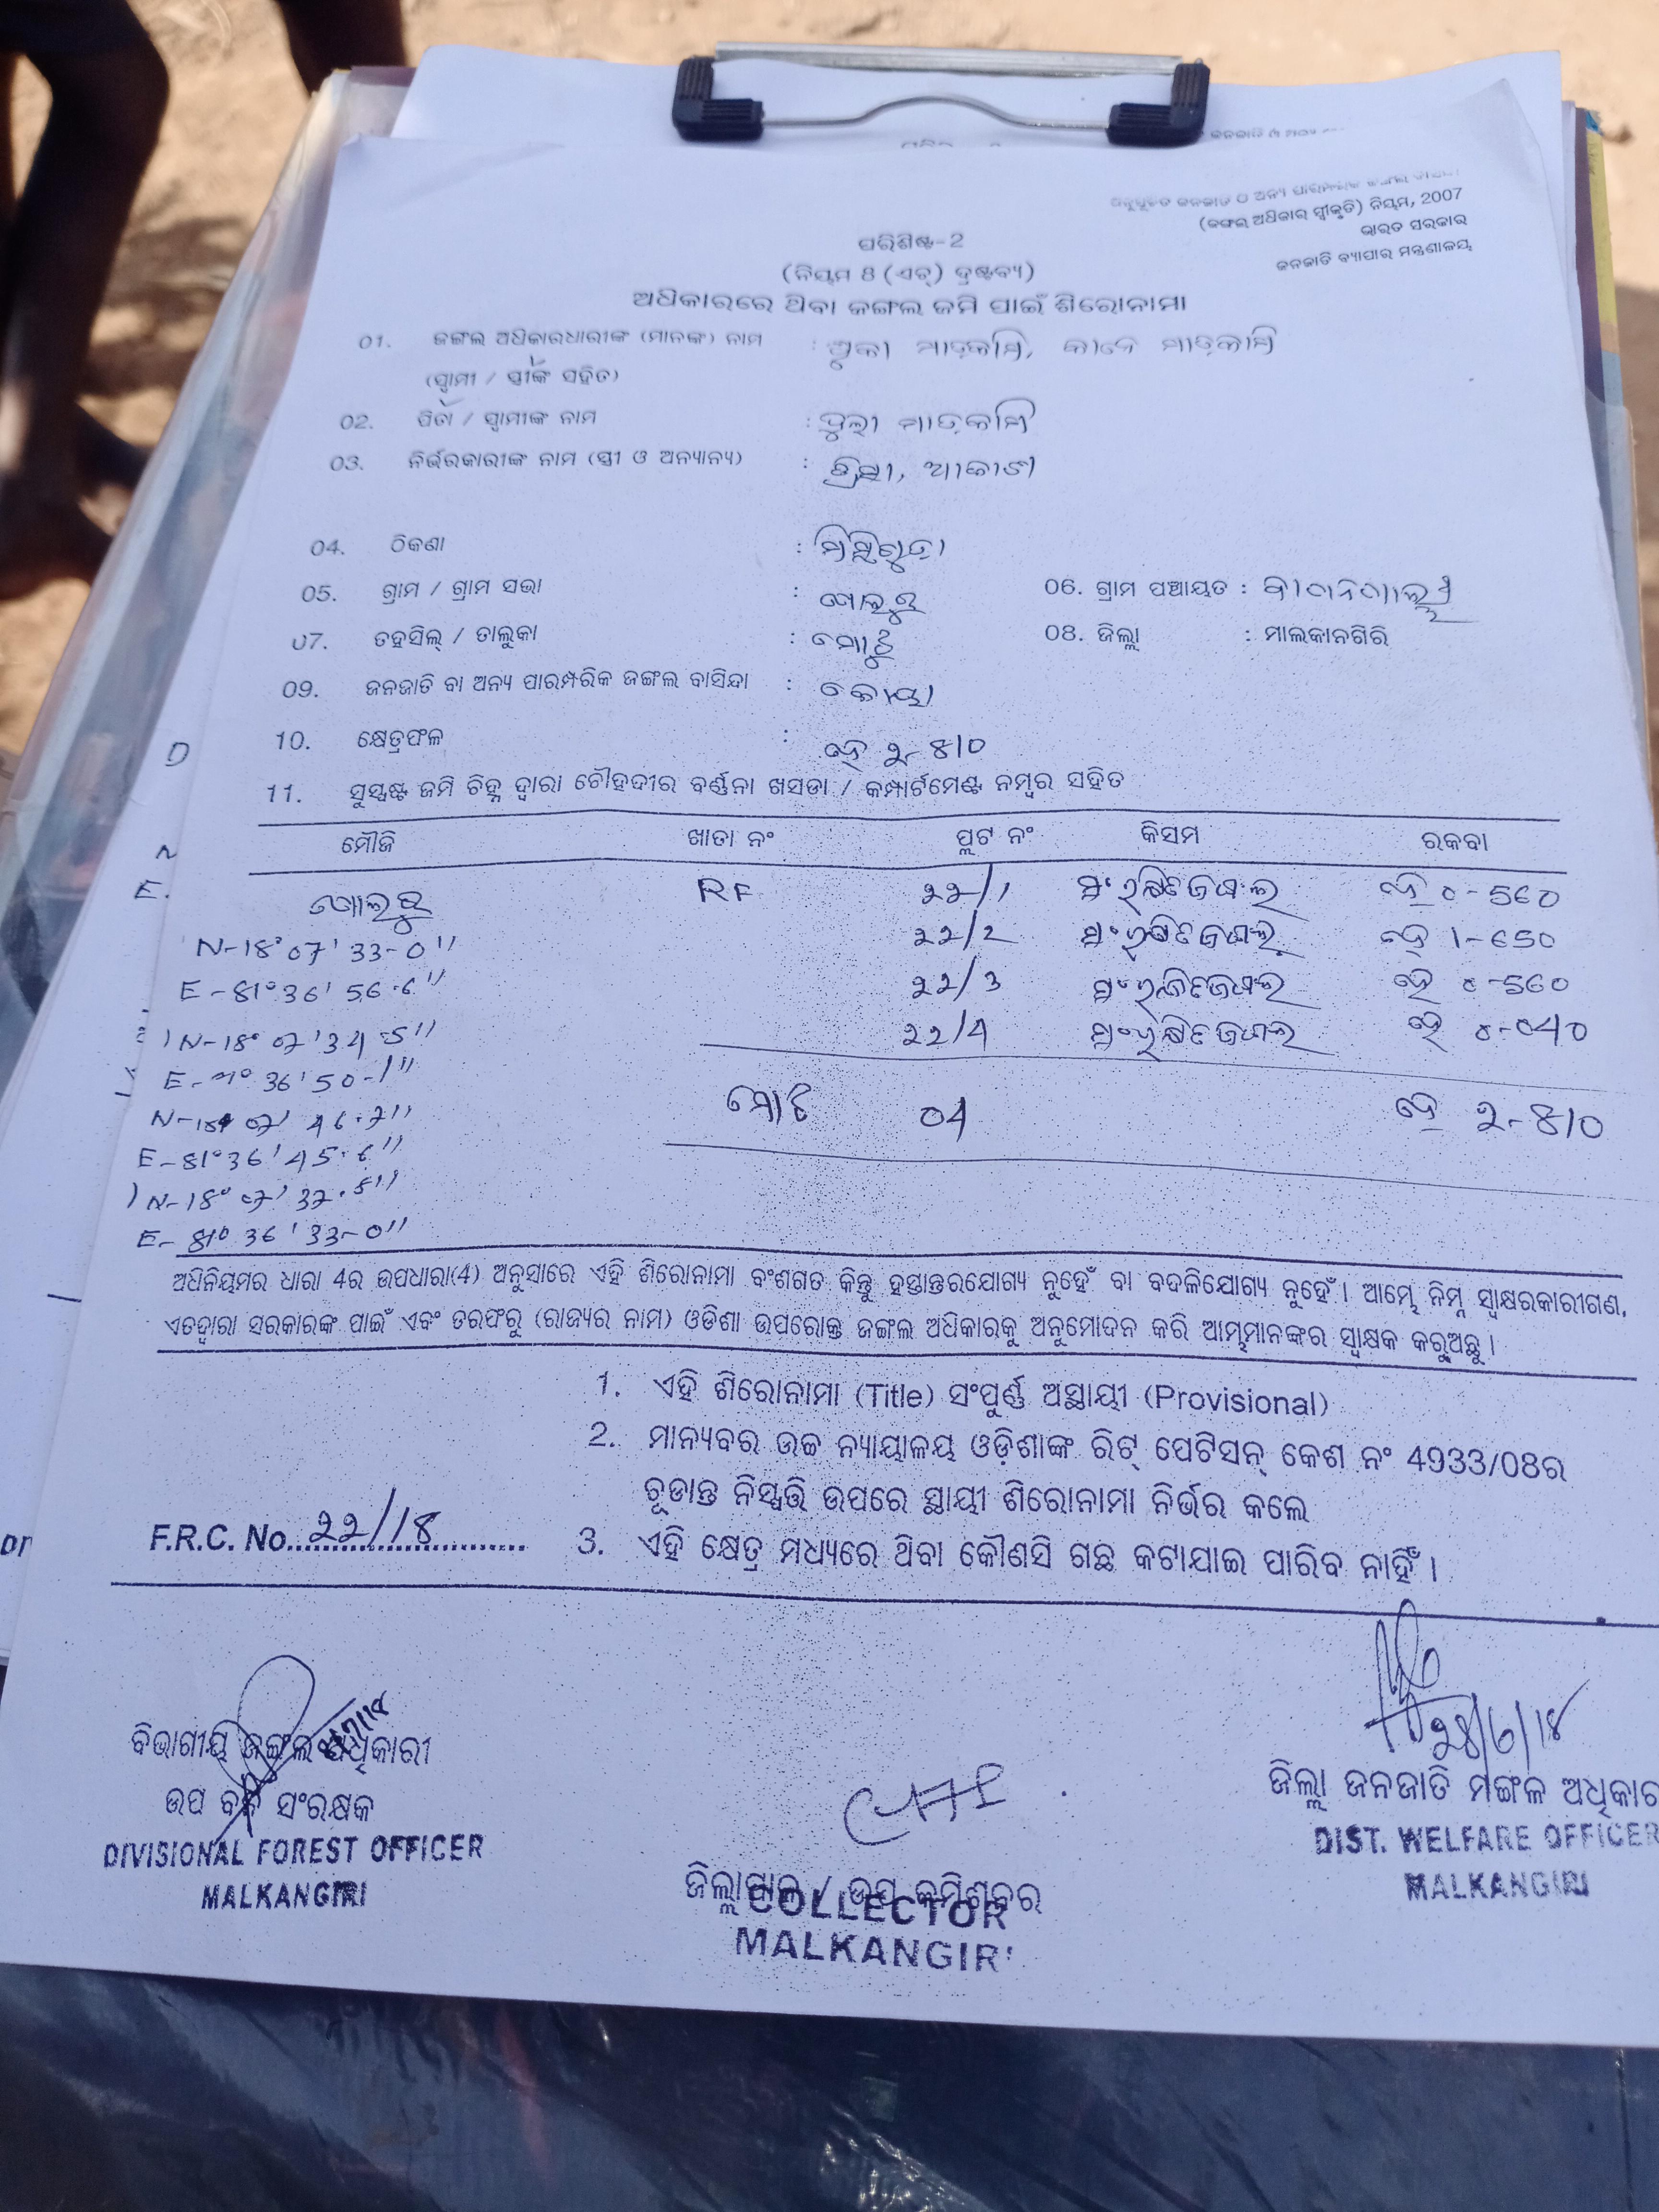 (ଜଙ୍ଗଲ ଅଧିକାର ସ୍ୱୀକୃତି) ନିୟମ, 2007
ଭାରତ ସରକାର
ଜନଜାତି ବ୍ୟାପାର ମନ୍ତ୍ରଣାଳୟ
ପରିଶିଷ୍ଟ-2
(ନିୟମ 8 (ଏଚ୍) ଦ୍ରଷ୍ଟବ୍ୟ)
ଅଧିକାରରେ ଥିବା ଜଙ୍ଗଲ ଜମି ପାଇଁ ଶିରୋନାମା
01. ଜଙ୍ଗଲ ଅଧିକାରଧାରୀଙ୍କ (ମାନଙ୍କ) ନାମ :
(ସ୍ୱାମୀ / ସ୍ତ୍ରୀଙ୍କ ସହିତ)
02. ପିତା / ସ୍ୱାମୀଙ୍କ ନାମ :
03. ନିର୍ଭରକାରୀଙ୍କ ନାମ (ସ୍ତ୍ରୀ ଓ ଅନ୍ୟାନ୍ୟ) :
04. ଠିକଣା :
05. ଗ୍ରାମ / ଗ୍ରାମ ସଭା : 06. ଗ୍ରାମ ପଞ୍ଚାୟତ :
07. ତହସିଲ୍ / ତାଲୁକା : ମୋଟୁ 08. ଜିଲ୍ଲା : ମାଲକାନଗିରି
09. ଜନଜାତି ବା ଅନ୍ୟ ପାରମ୍ପରିକ ଜଙ୍ଗଲ ବାସିନ୍ଦା : କୋୟା
10. କ୍ଷେତ୍ରଫଳ : ହେ 2-810
11. ସୁସ୍ପଷ୍ଟ ଜମି ଚିହ୍ନ ଦ୍ୱାରା ଚୌହଦୀର ବର୍ଣ୍ଣନା ଖସଡା / କମ୍ପାର୍ଟମେଣ୍ଟ ନମ୍ବର ସହିତ
ମୌଜି ଖାତା ନଂ ପ୍ଲଟ ନଂ କିସମ ରକବା
RF 22/1 ସଂରକ୍ଷିତ ଜଙ୍ଗଲ ହେ 0-560
N-18°07'33-0" 22/2 ସଂରକ୍ଷିତ ଜଙ୍ଗଲ ହେ 1-650
E-81°36'56.6" 22/3 ସଂରକ୍ଷିତ ଜଙ୍ଗଲ ହେ 0-560
N-18°07'34.5" 22/4 ସଂରକ୍ଷିତ ଜଙ୍ଗଲ ହେ 0-040
36'50-1"
ମୋଟ 04 ହେ 2-810
07' 46.2"
E-81°36'45.6"
N-18°07'37.5"
E-81° 36'33-0"
ଅଧିନିୟମର ଧାରା 4ର ଉପଧାରା(4) ଅନୁସାରେ ଏହି ଶିରୋନାମା ବଂଶଗତ କିନ୍ତୁ ହସ୍ତାନ୍ତରଯୋଗ୍ୟ ନୁହେଁ ବା ବଦଳିଯୋଗ୍ୟ ନୁହେଁ। ଆମ୍ଭେ ନିମ୍ନ ସ୍ୱାକ୍ଷରକାରୀଗଣ,
ଏତଦ୍ୱାରା ସରକାରଙ୍କ ପାଇଁ ଏବଂ ତରଫରୁ (ରାଜ୍ୟର ନାମ) ଓଡିଶା ଉପରୋକ୍ତ ଜଙ୍ଗଲ ଅଧିକାରକୁ ଅନୁମୋଦନ କରି ଆମ୍ଭମାନଙ୍କର ସ୍ୱାକ୍ଷକ କରୁଅଛୁ।
1. ଏହି ଶିରୋନାମା (Title) ସଂପୂର୍ଣ୍ଣ ଅସ୍ଥାୟୀ (Provisional)
2. ମାନ୍ୟବର ଉଚ୍ଚ ନ୍ୟାୟାଳୟ ଓଡ଼ିଶାଙ୍କ ରିଟ୍ ପେଟିସନ୍ କେଶ ନଂ 4933/08ର
ଚୂଡାନ୍ତ ନିସ୍ପତ୍ତି ଉପରେ ସ୍ଥାୟୀ ଶିରୋନାମା ନିର୍ଭର କଲେ
F.R.C. No. 22/18
3. ଏହି କ୍ଷେତ୍ର ମଧ୍ୟରେ ଥିବା କୌଣସି ଗଛ କଟାଯାଇ ପାରିବ ନାହିଁ।
ବିଭାଗୀୟ ଜଙ୍ଗଲ ଅଧିକାରୀ
ଉପ ବନ ସଂରକ୍ଷକ
DIVISIONAL FOREST OFFICER
MALKANGIRI
ଜିଲ୍ଲାପାଳ / ଉପ କମିଶନର
COLLECTOR
MALKANGIRI
ଜିଲ୍ଲା ଜନଜାତି ମଙ୍ଗଳ ଅଧିକାର
DIST. WELFARE OFFICER
MALKANGIRI